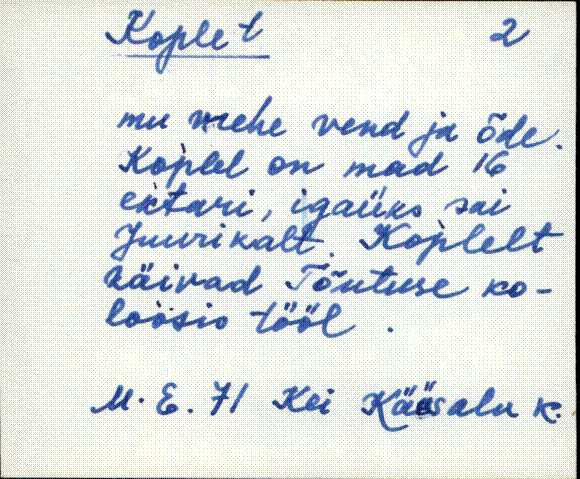 Koplet 2
mu mehe vend ja õde.
Koplel on mad 16
ektari, igaüks sai
Juurikalt. Koplelt
käivad Tõutuse ko-
loosio tööl.
M. E. 71 Kei Käesalu k.